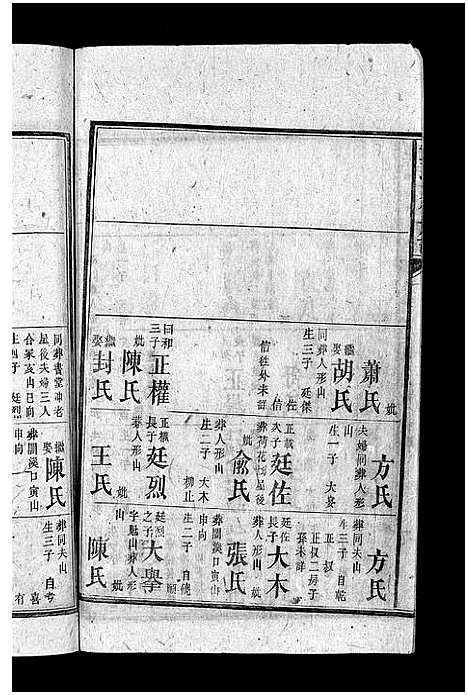 蕭氏
妣
繼娶
胡氏
同葬人形山
生三子
廷傑
廷佐
廷信
信往外未詳
曰和三子
正權
妣
陳氏
繼娶
封氏
方氏
夫婦同葬人形山
生一子
大委
正權次子
廷佐
葬荷花
屋後
妣
俞氏
葬人形山
生二子
大木
正權長子
廷烈
葬人形山
妣
王氏
方氏
葬同夫山
生三子
自乾
正叔
正叔二房子
孫未詳
廷佐長子
大木
葬人形山
妣
張氏
葬關溪口寅山申向
生二子
自僥
廷烈之子
大學
字魁山葬人形山
妣
陳氏
同葬貴堂冲老屋後夫婦三人合冢亥山巳向
生四子
廷烈
繼娶
陳氏
葬關溪口寅山申向
葬同夫山
生三子
自
有
喜